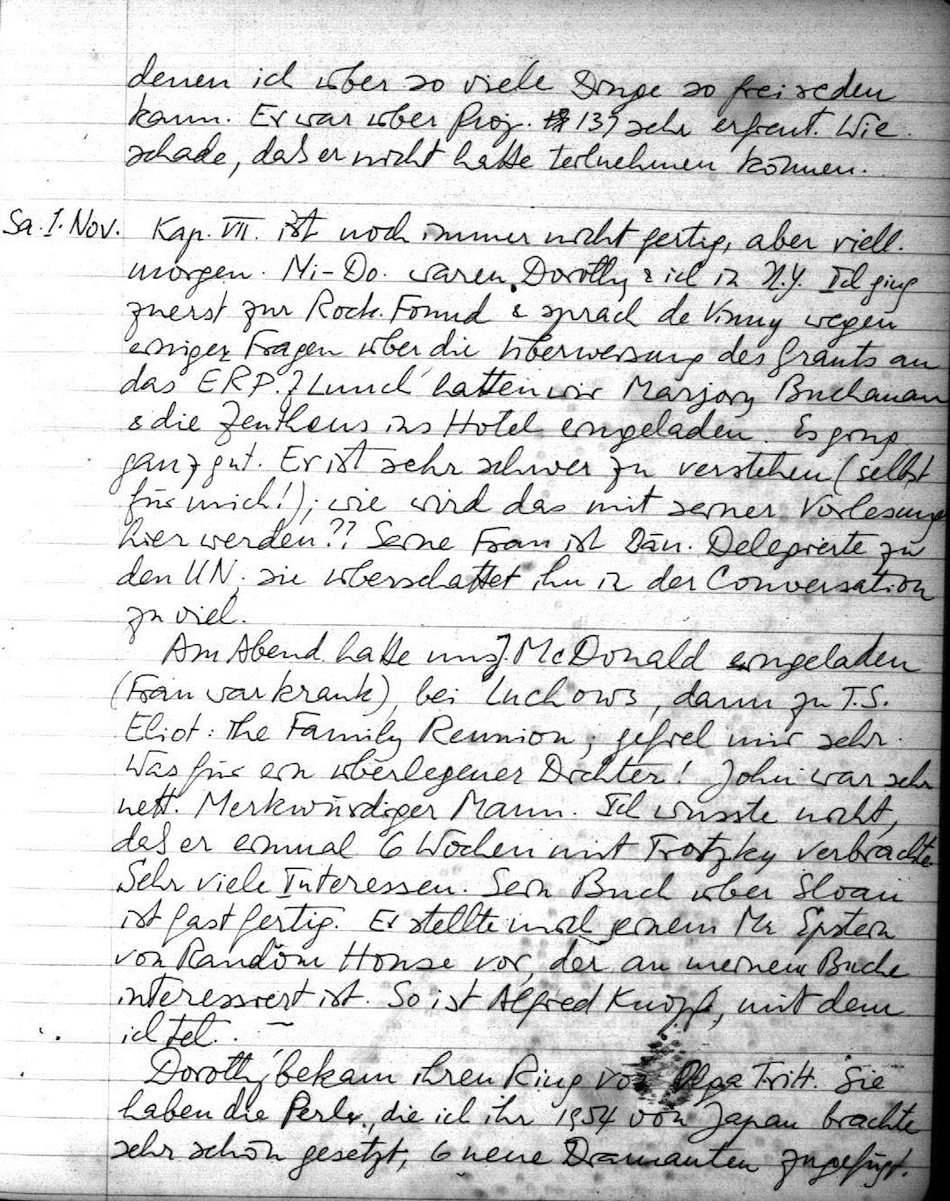 denen ich über so viele Dinge so frei reden
kann. Er war über Proj. # 137 sehr erfreut. Wie
schade, dass er nicht hatte teilnehmen können.
Sa. 1. Nov. Kap. VII. ist noch immer nicht fertig, aber viell.
morgen. Mi-Do. waren Dorothy & ich in N.Y. Ich ging
zuerst zur Rock. Found & sprach de Vinny wegen
einiger Fragen über die Überweisung des Grants an
das ERP. Z. Lunch hatten wir Marjory Buchanan
& die Zeuthens ins Hotel eingeladen. Es ging
ganz gut. Er ist sehr schwer zu verstehen (selbst
für mich!); wie wird das mit seiner Vorlesung
hier werden?? Seine Frau ist Dän. Delegierte zu
den UN; sie überschattet ihn in der Conversation
zu viel.
Am Abend hatte uns J. McDonald eingeladen
(Frau war krank), bei Luchows, dann zu T.S.
Eliot: The Family Reunion; gefiel mir sehr.
Was für ein überlegener Dichter! John war sehr
nett. Merkwürdiger Mann. Ich wusste nicht,
das er einmal 6 Wochen mit Trotzky verbrachte
Sehr viele Interessen. Sein Buch über Sloan
ist fast fertig. Er stellte mich einem Mr Epstein
von Random House vor, der an meinem Buche
interessiert ist. So ist Alfred Knopf, mit dem
ich tel. –
Dorothy bekam ihren Ring von Olga Tritt. Sie
haben die Perle, die ich ihr 1954 von Japan brachte
sehr schön gesetzt, 6 neue Diamanten zugefügt.